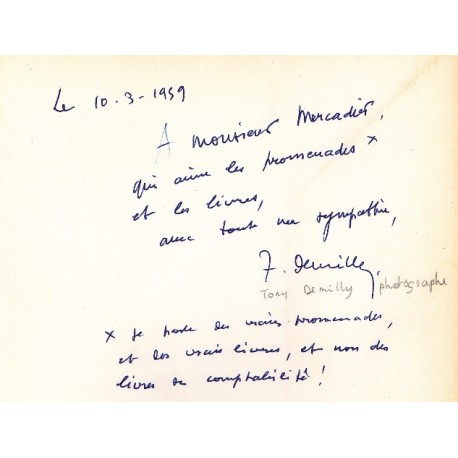 Le 10.3-1959
A Monsieur Mercadier,
qui aime les promenades x
et les livres,
avec toute ma sympathie,
T. Demilly,
Tony Demilly photographe
x je parle des vraies promenades,
et des vrais livres, et non des
livres de comptabilité !